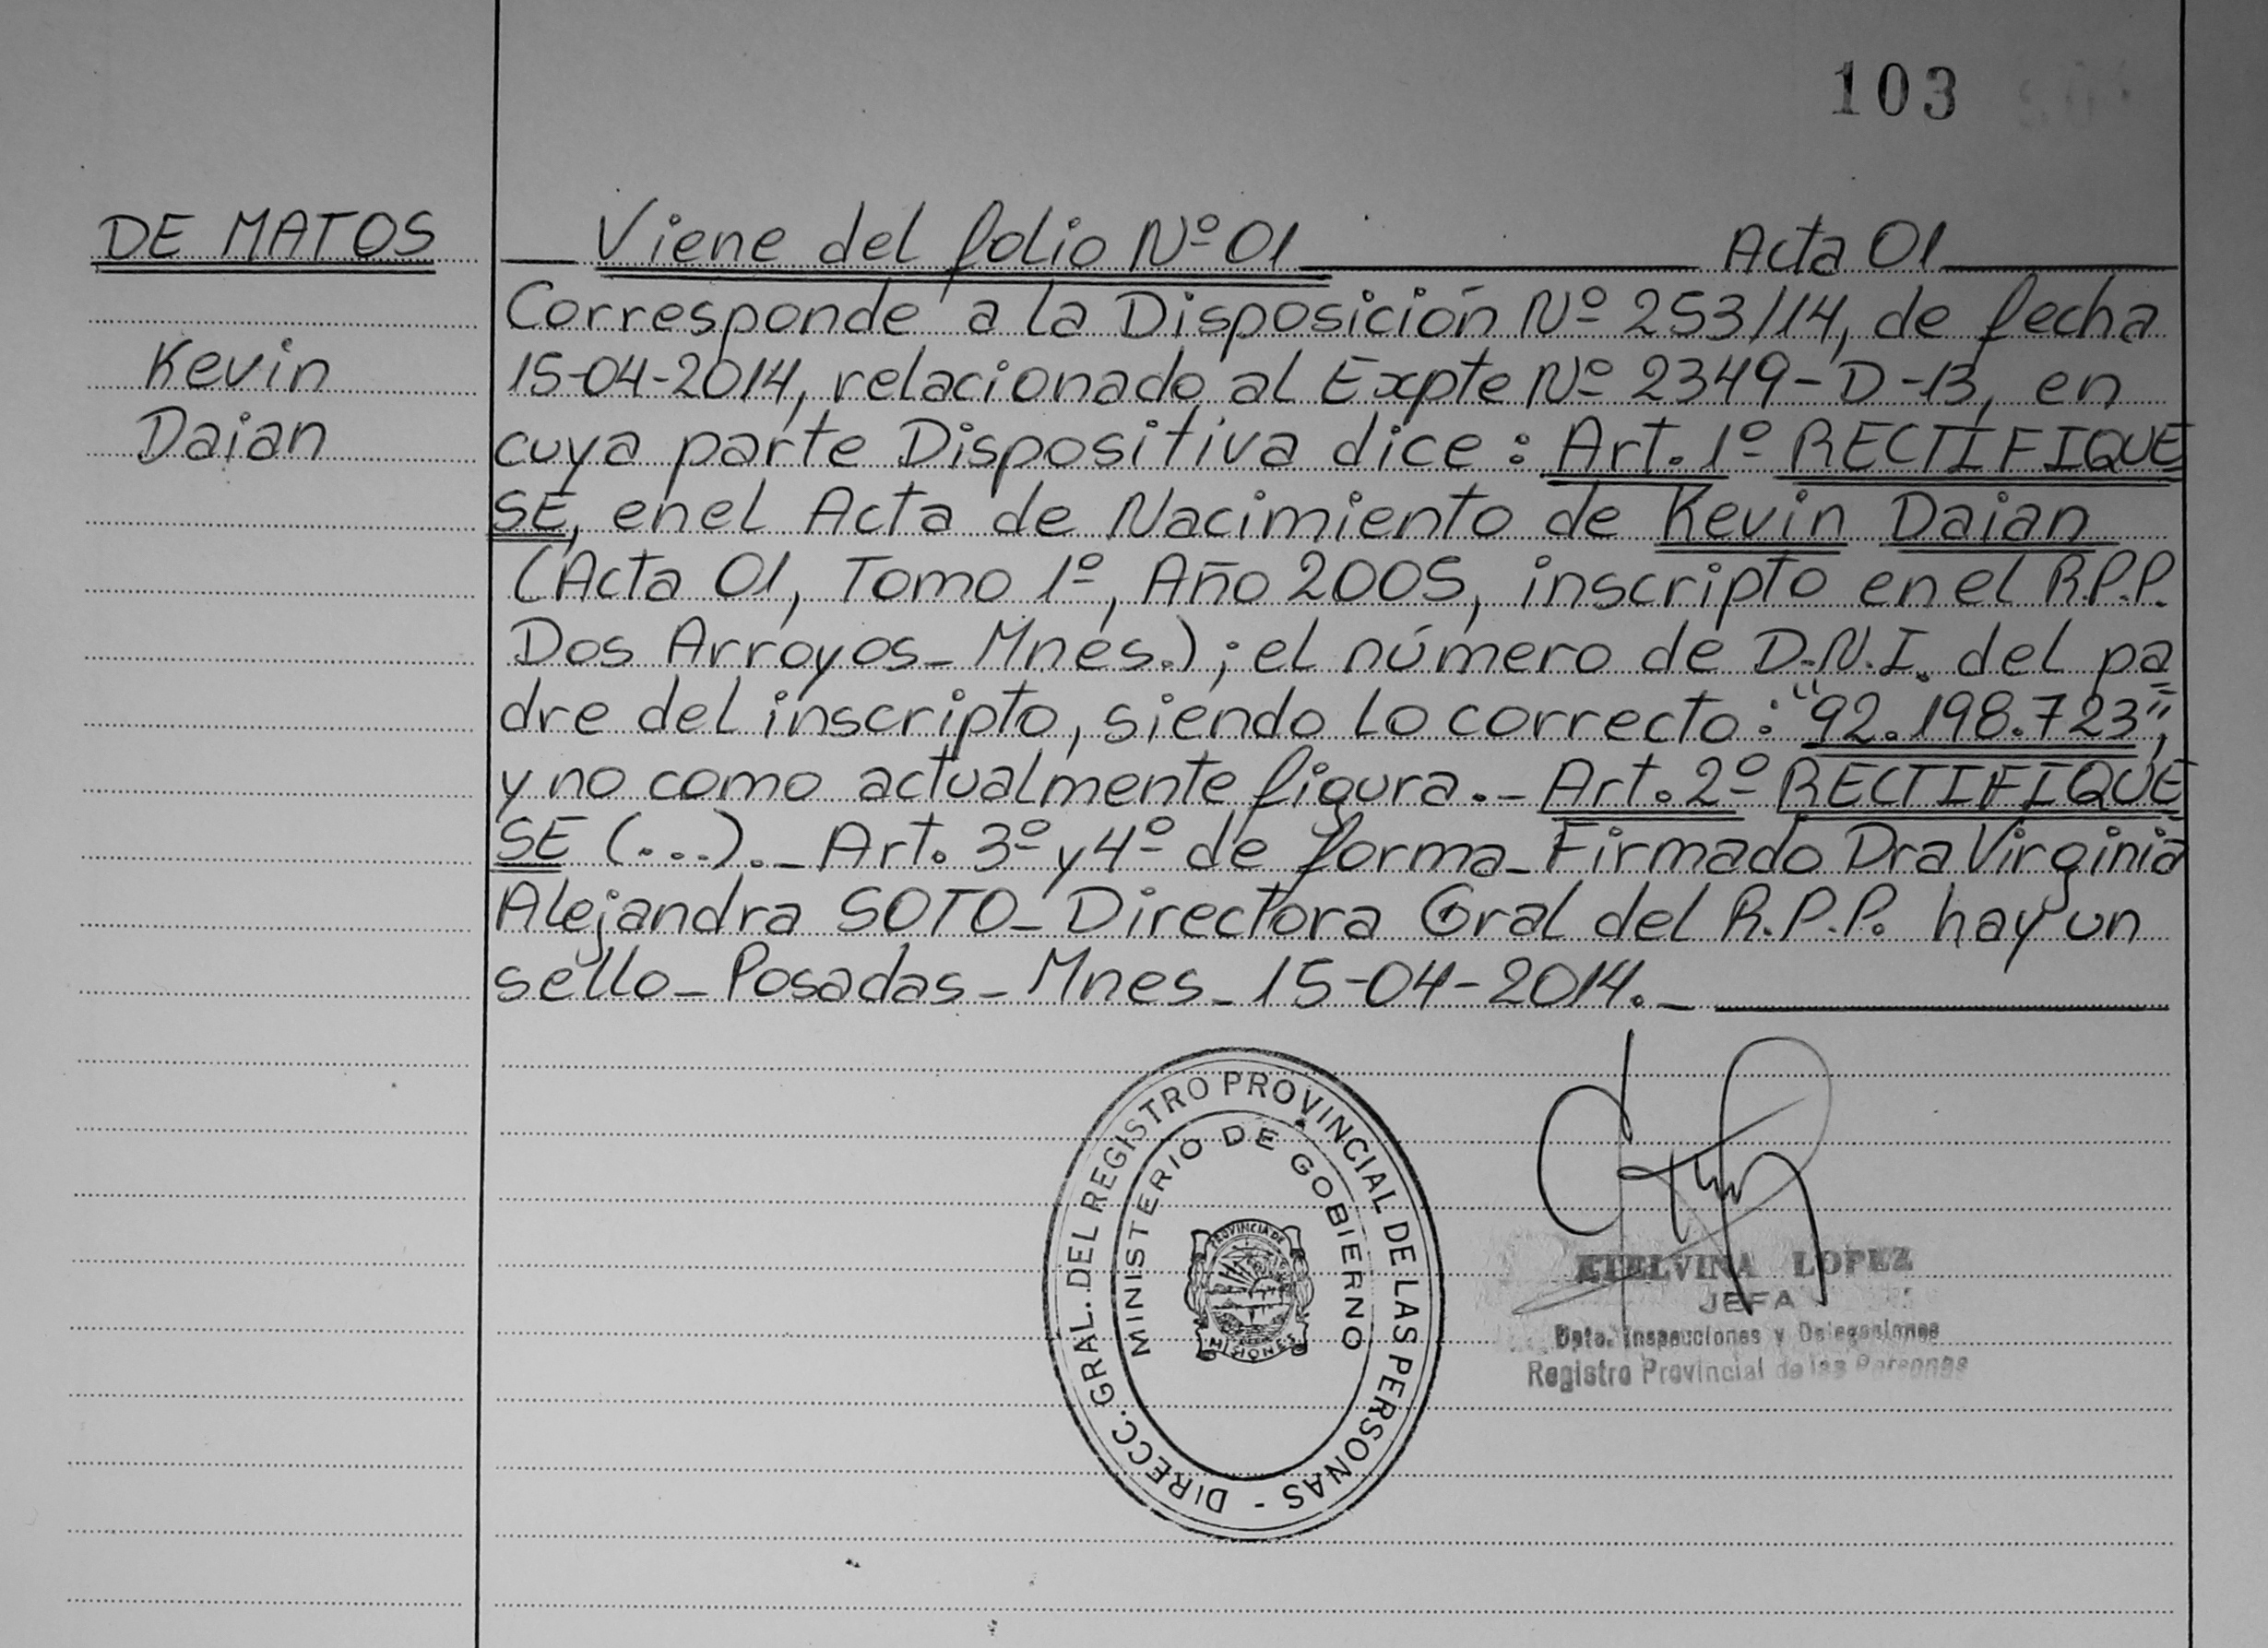 103
DE MATOS
Kevin
Daian
Viene del folio Nº 01 Acta 01
Corresponde a la Disposición Nº 253/14, de fecha
15-04-2014, relacionado al Expte Nº 2349-D-13, en
cuya parte Dispositiva dice: Art. 1º RECTIFIQUE
SE, en el Acta de Nacimiento de Kevin Daian
(Acta 01, Tomo 1º, Año 2005, inscripto en el R.P.P.
Dos Arroyos_ Mnes.); el número de D.N.I. del pa
dre del inscripto, siendo lo correcto: "92.198.723",
y no como actualmente figura._ Art. 2º RECTIFIQUE
SE (...)._ Art. 3º y 4º de forma_ Firmado Dra Virginia
Alejandra SOTO_ Directora Gral del R.P.P. hay un
sello_ Posadas_ Mnes_ 15-04-2014._
DIRECC. GRAL. DEL REGISTRO PROVINCIAL DE LAS PERSONAS -
MINISTERIO DE GOBIERNO
PROVINCIA DE
MISIONES
ETELVINA LOPEZ
JEFA
Dpto. Inspecciones y Delegaciones
Registro Provincial de las Personas